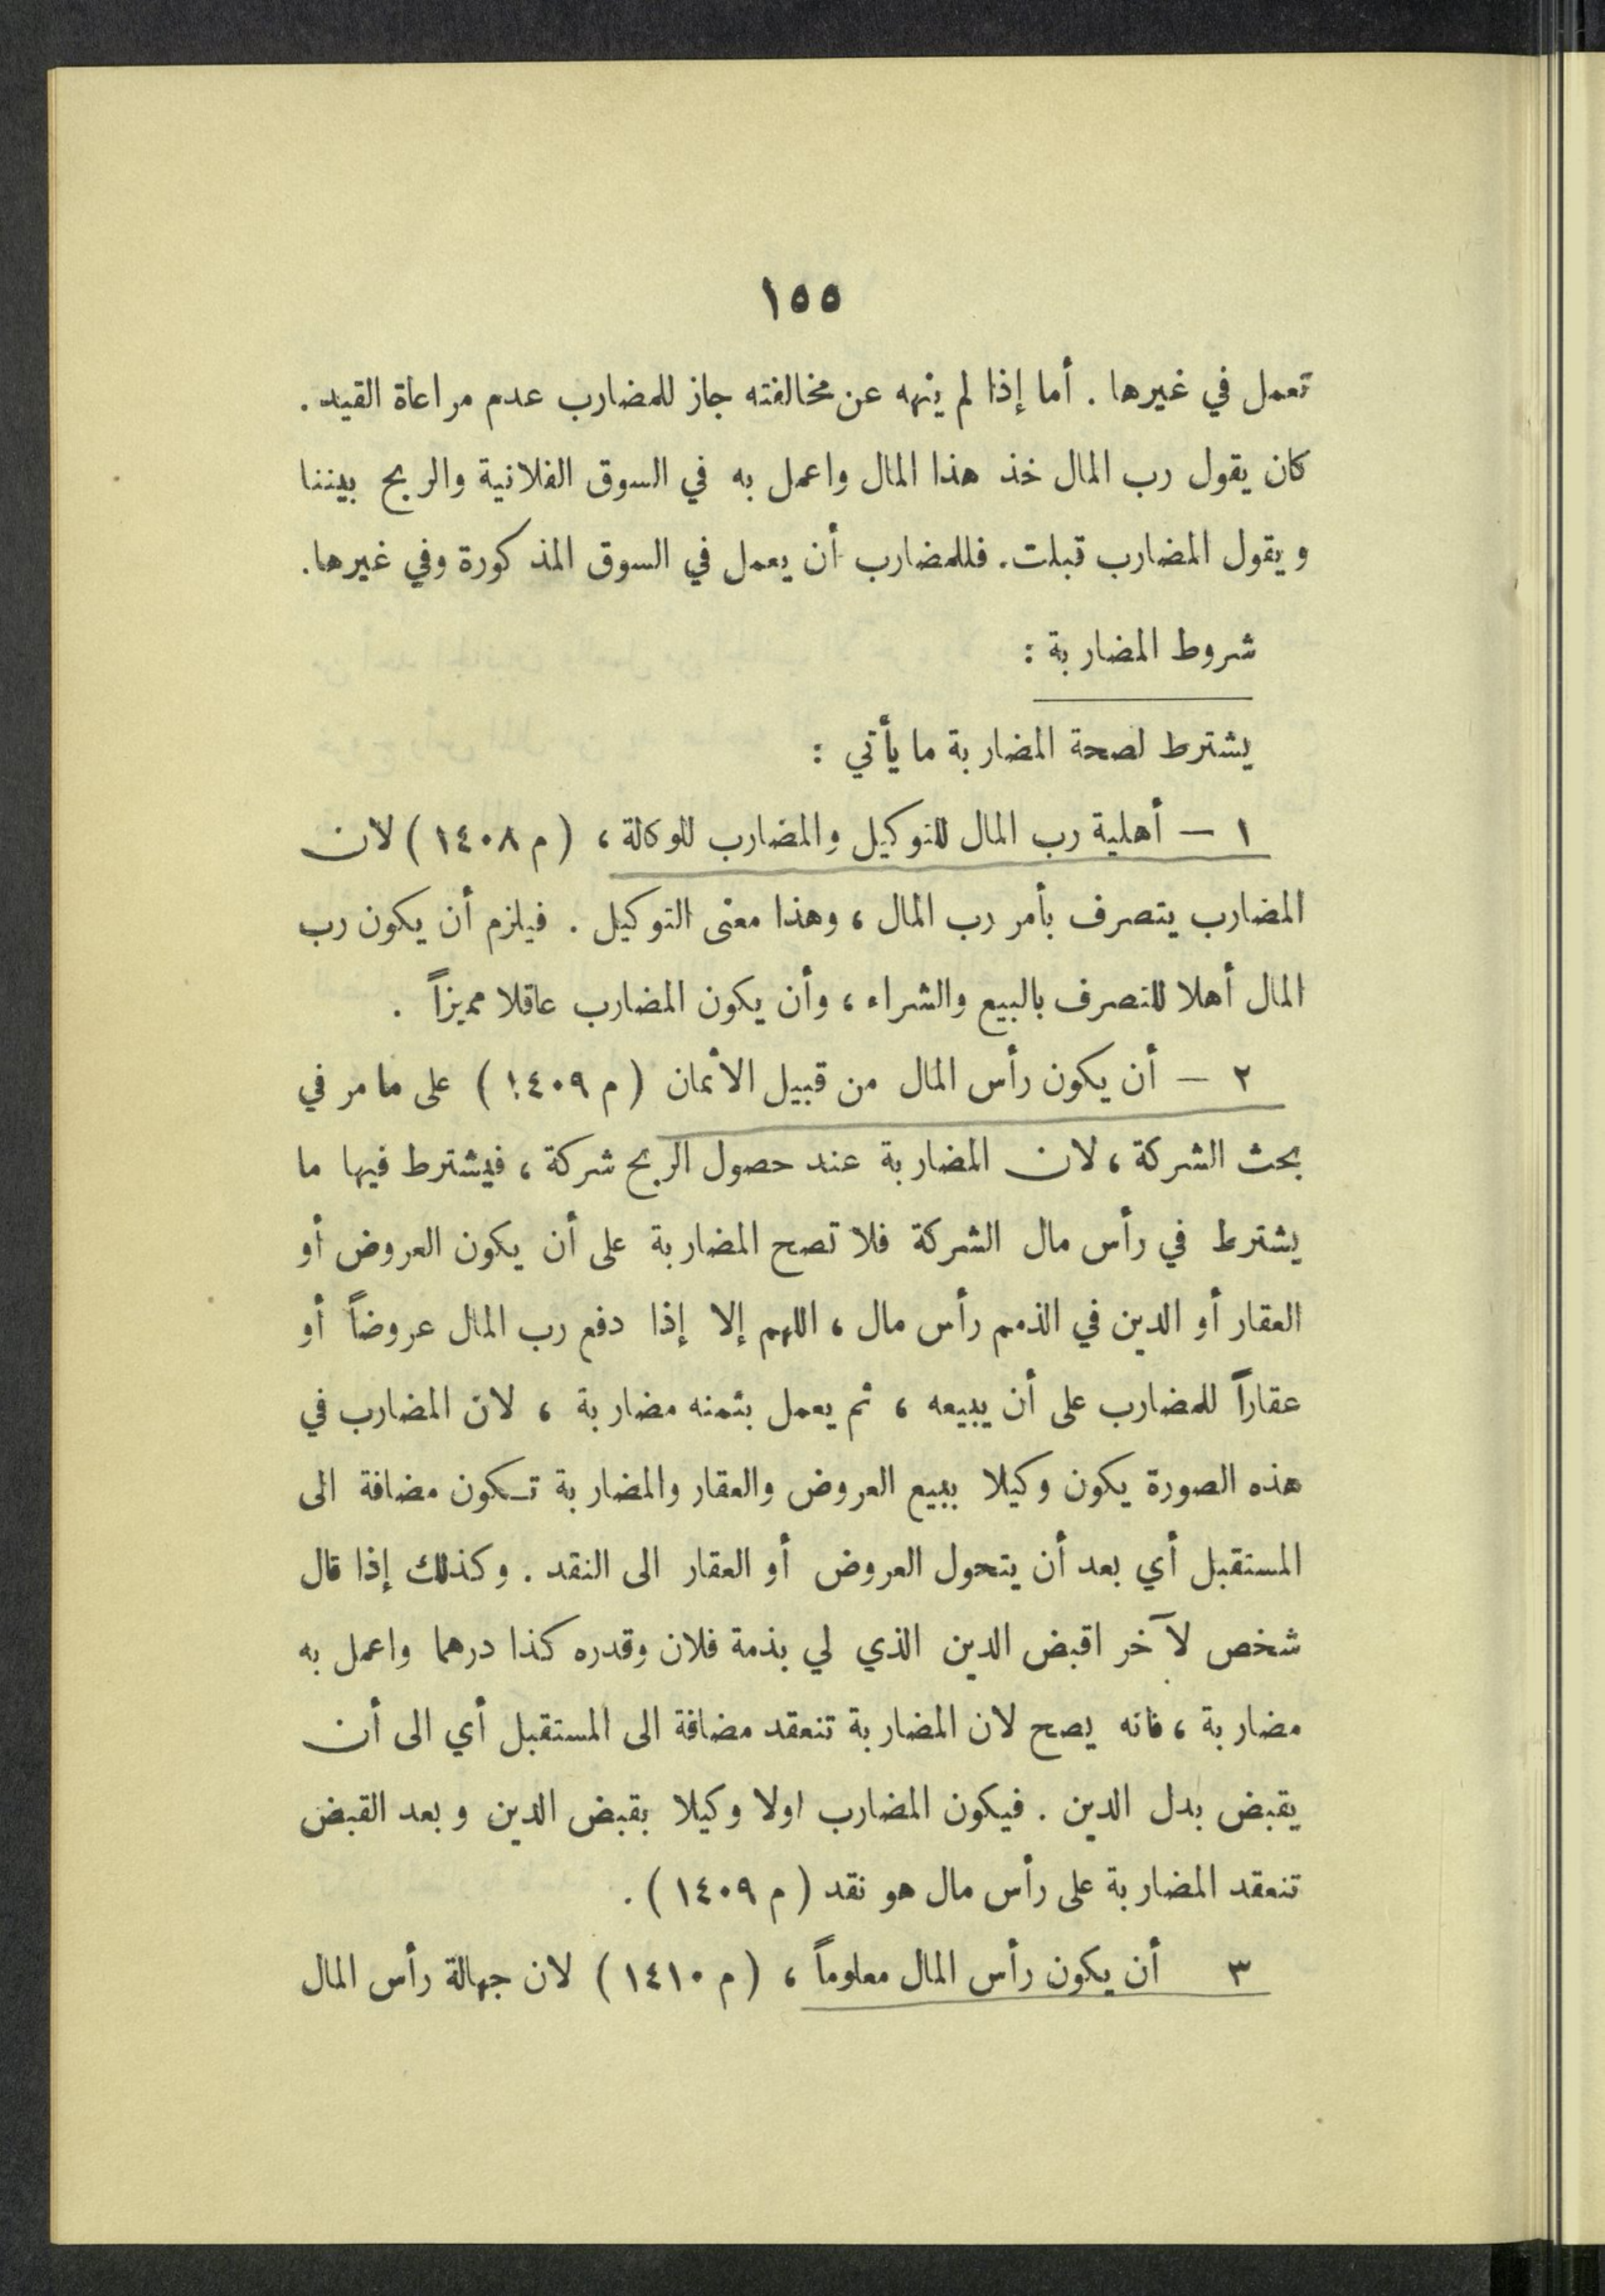 ١٥٥
تعمل في غيرها . أما إذا لم ينهه عن مخالفته جاز للمضارب عدم مراعاة القيد .
كان يقول رب المال خذ هذا المال واعمل به في السوق الفلانية والربح بيننا
ويقول المضارب قبلت . فللمضارب أن يعمل في السوق المذكورة وفي غيرها .
شروط المضاربة :
يشترط لصحة المضاربة ما يأتي :
١ — أهلية رب المال للتوكيل والمضارب للوكالة ، ( م ١٤٠٨ ) لان
المضارب يتصرف بأمر رب المال ، وهذا معنى التوكيل . فيلزم أن يكون رب
المال أهلا للتصرف بالبيع والشراء ، وأن يكون المضارب عاقلا مميزاً .
٢ — أن يكون رأس المال من قبيل الأثمان ( م ١٤٠٩ ) على ما مر في
بحث الشركة ، لان المضاربة عند حصول الربح شركة ، فيشترط فيها ما
يشترط في رأس مال الشركة فلا تصح المضاربة على أن يكون العروض أو
العقار أو الدين في الذمم رأس مال ، اللهم إلا إذا دفع رب المال عروضاً أو
عقاراً للمضارب على أن يبيعه ، ثم يعمل بثمنه مضاربة ، لان المضارب في
هذه الصورة يكون وكيلا ببيع العروض والعقار والمضاربة تـكون مضافة الى
المستقبل أي بعد أن يتحول العروض أو العقار الى النقد . وكذلك إذا قال
شخص لآخر اقبض الدين الذي لي بذمة فلان وقدره كذا درهما واعمل به
مضاربة ، فانه يصح لان المضاربة تنعقد مضافة الى المستقبل أي الى أن
يقبض بدل الدين . فيكون المضارب اولا وكيلا بقبض الدين وبعد القبض
تنعقد المضاربة على رأس مال هو نقد ( م ١٤٠٩ ) .
٣ أن يكون رأس المال معلوماً ، ( م ١٤١٠ ) لان جهالة رأس المال